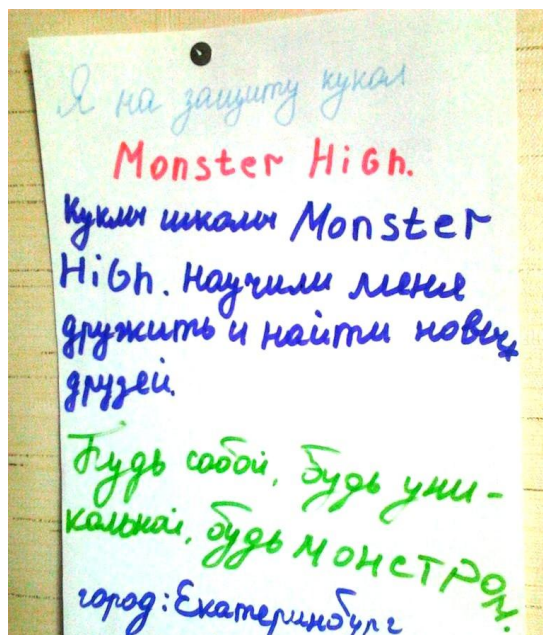 Я на защиту кукол
Monster High.
Куклы школы Monster
High. научили меня
дружить и найти новых
друзей.
Будь собой, будь уни-
кальной, будь МОНСТРОМ.
город: Екатеринбург